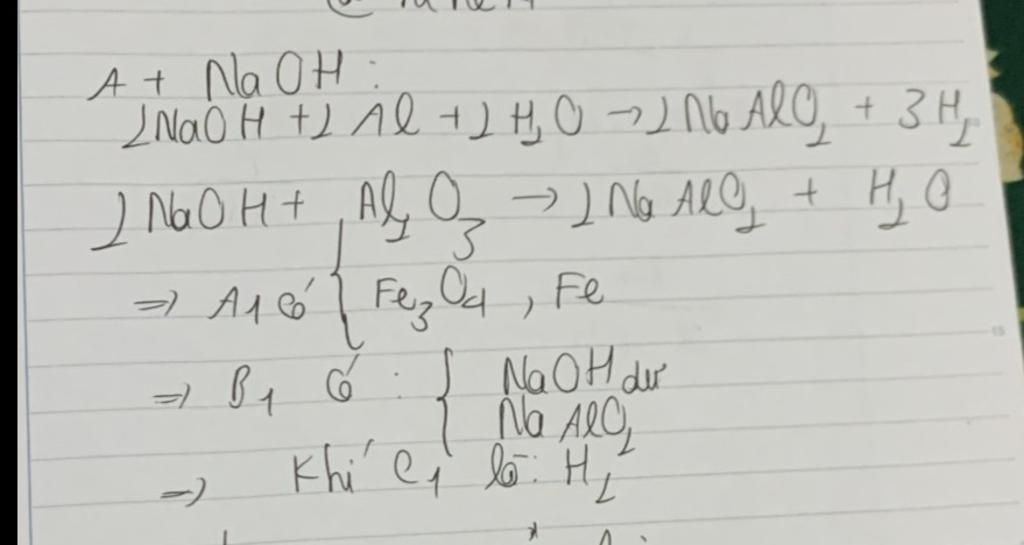 A + NaOH :
2NaOH + 2Al + 2H₂O → 2NaAlO₂ + 3H₂
2NaOH + Al₂O₃ → 2NaAlO₂ + H₂O
=> A1 có { Fe₃O₄ , Fe
=> B1 có : { NaOH dư
NaAlO₂
=> Khí C1 là : H₂